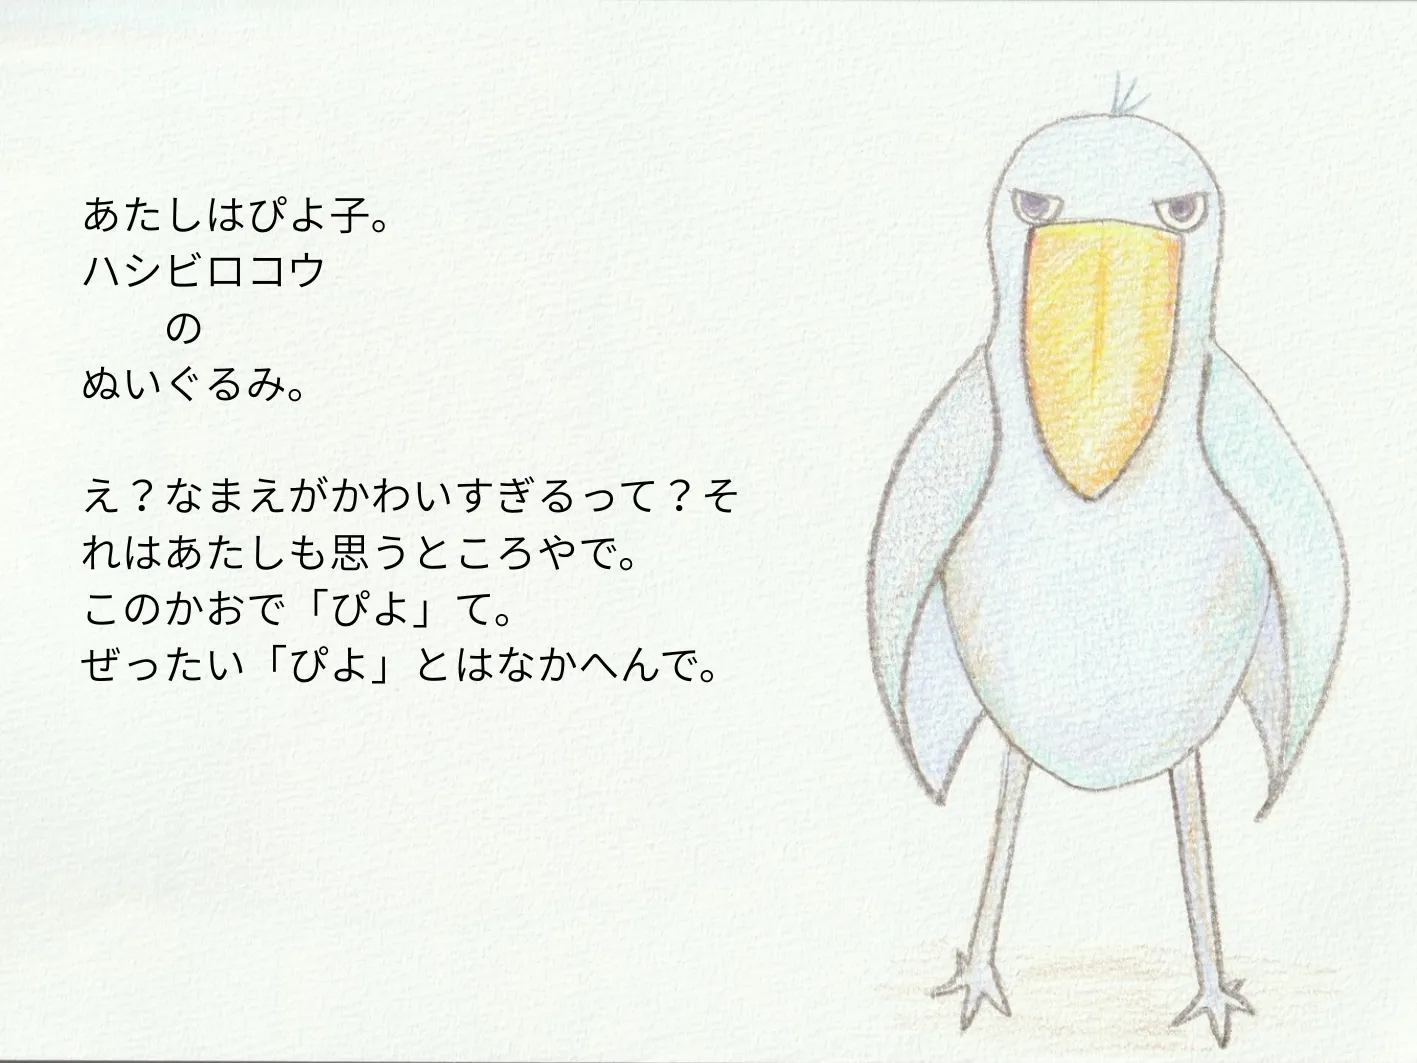 あたしはぴよ子。
ハシビロコウ
の
ぬいぐるみ。
え？なまえがかわいすぎるって？そ
れはあたしも思うところやで。
このかおで「ぴよ」て。
ぜったい「ぴよ」とはなかへんで。